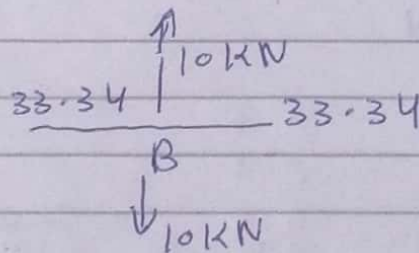 10KN
33.34 33.34
B
10KN